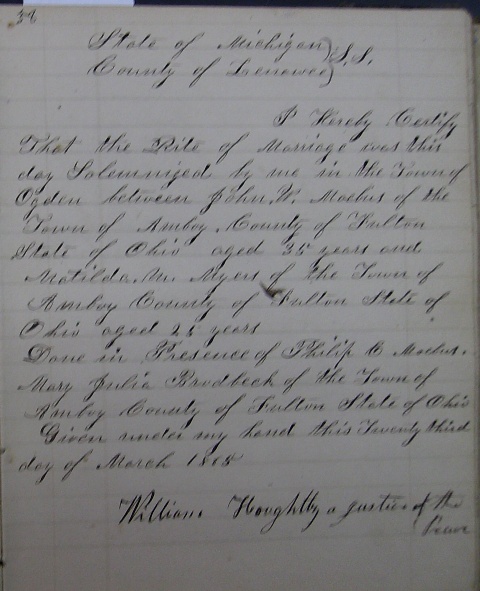 38
State of Michigan } S.S.
County of Lenawee }
I Hereby Certify
That the Rite of Marriage was this
day Solemnized by me in the Town of
Ogden between John. W. Moebus of the
Town of Amboy County of Fulton
State of Ohio aged 35 years and
Matilda. M. Myers of the Town of
Amboy County of Fulton State of
Ohio aged 25 years
Done in Presence of Philip C Moebus.
Mary Julia Brodbeck of the Town of
Amboy County of Fulton State of Ohio
Given under my hand this Twenty third
day of March 1865
William Houghtby a Justice of the
Peace